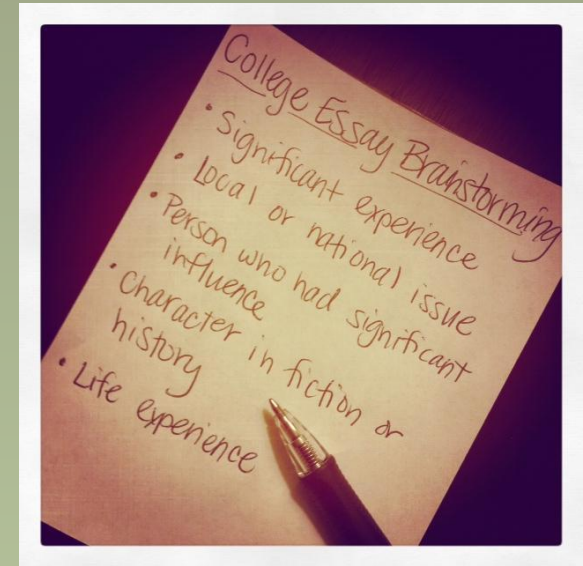 College Essay Brainstorming
• Significant experience
• Local or national issue
• Person who had significant
influence
• Character in fiction or
history
• Life experience